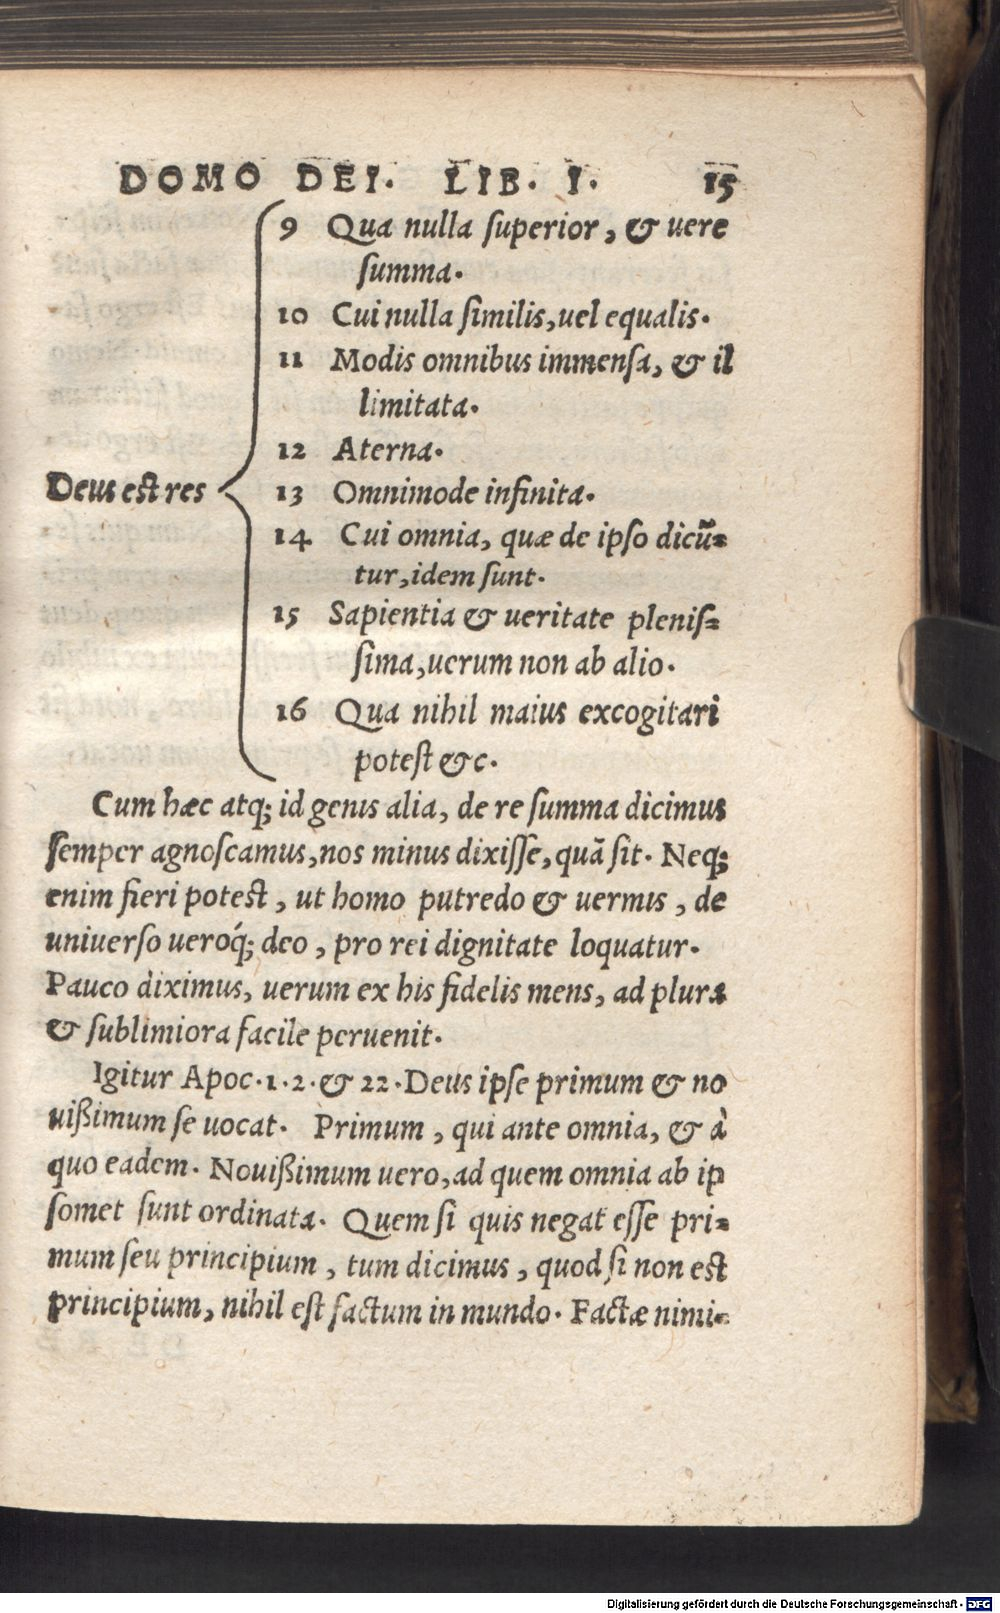 DOMO DEI. LIB. I. 15
9 Qua nulla ſuperior, & uere
ſumma.
10 Cui nulla ſimilis, uel equalis.
11 Modis omnibus immenſa, & il
limitata.
12 Aterna.
Deus est res
13 Omnimode infinita.
14 Cui omnia, quæ de ipſo dicũ-
tur, idem ſunt.
15 Sapientia & ueritate pleniſ-
ſima, uerum non ab alio.
16 Qua nihil maius excogitari
poteſt &c.
Cum hæc atq; id genus alia, de re ſumma dicimus
ſemper agnoſcamus, nos minus dixiſſe, quã ſit. Neq;
enim fieri potest, ut homo putredo & uermis, de
uniuerſo ueroq́; deo, pro rei dignitate loquatur.
Pauco diximus, uerum ex his fidelis mens, ad plura
& ſublimiora facile peruenit.
Igitur Apoc. 1. 2. & 22. Deus ipſe primum & no
uiſſimum ſe uocat. Primum, qui ante omnia, & à
quo eadem. Nouiſſimum uero, ad quem omnia ab ip
ſomet ſunt ordinata. Quem ſi quis negat eſſe pri-
mum ſeu principium, tum dicimus, quod ſi non est
principium, nihil eſt factum in mundo. Factæ nimi-
Digitalisierung gefördert durch die Deutsche Forschungsgemeinschaft - DFG